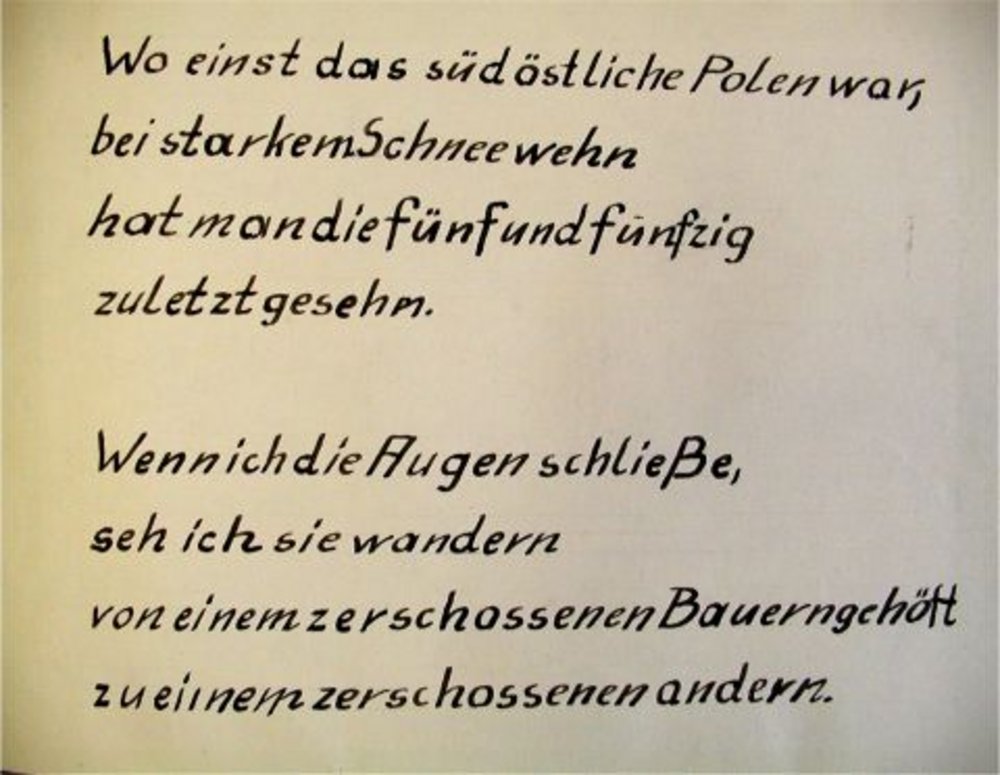 Wo einst das südöstliche Polen war,
bei starkem Schneewehn
hat man die fünfundfünfzig
zuletzt gesehn.
Wenn ich die Augen schließe,
seh ich sie wandern
von einem zerschossenen Bauerngehöft
zu einem zerschossenen andern.